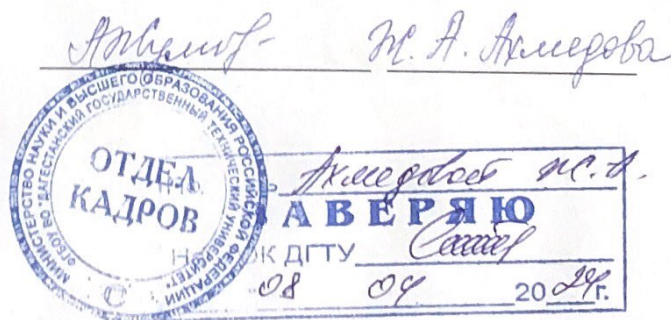 Ж. А. Ахмедова
МИНИСТЕРСТВО НАУКИ И ВЫСШЕГО ОБРАЗОВАНИЯ РОССИЙСКОЙ ФЕДЕРАЦИИ
ФГБОУ ВО "ДАГЕСТАНСКИЙ ГОСУДАРСТВЕННЫЙ ТЕХНИЧЕСКИЙ УНИВЕРСИТЕТ"
ОТДЕЛ
КАДРОВ
Ахмедовой Ж. А.
ЗАВЕРЯЮ
ДГТУ
08 04 2024г.